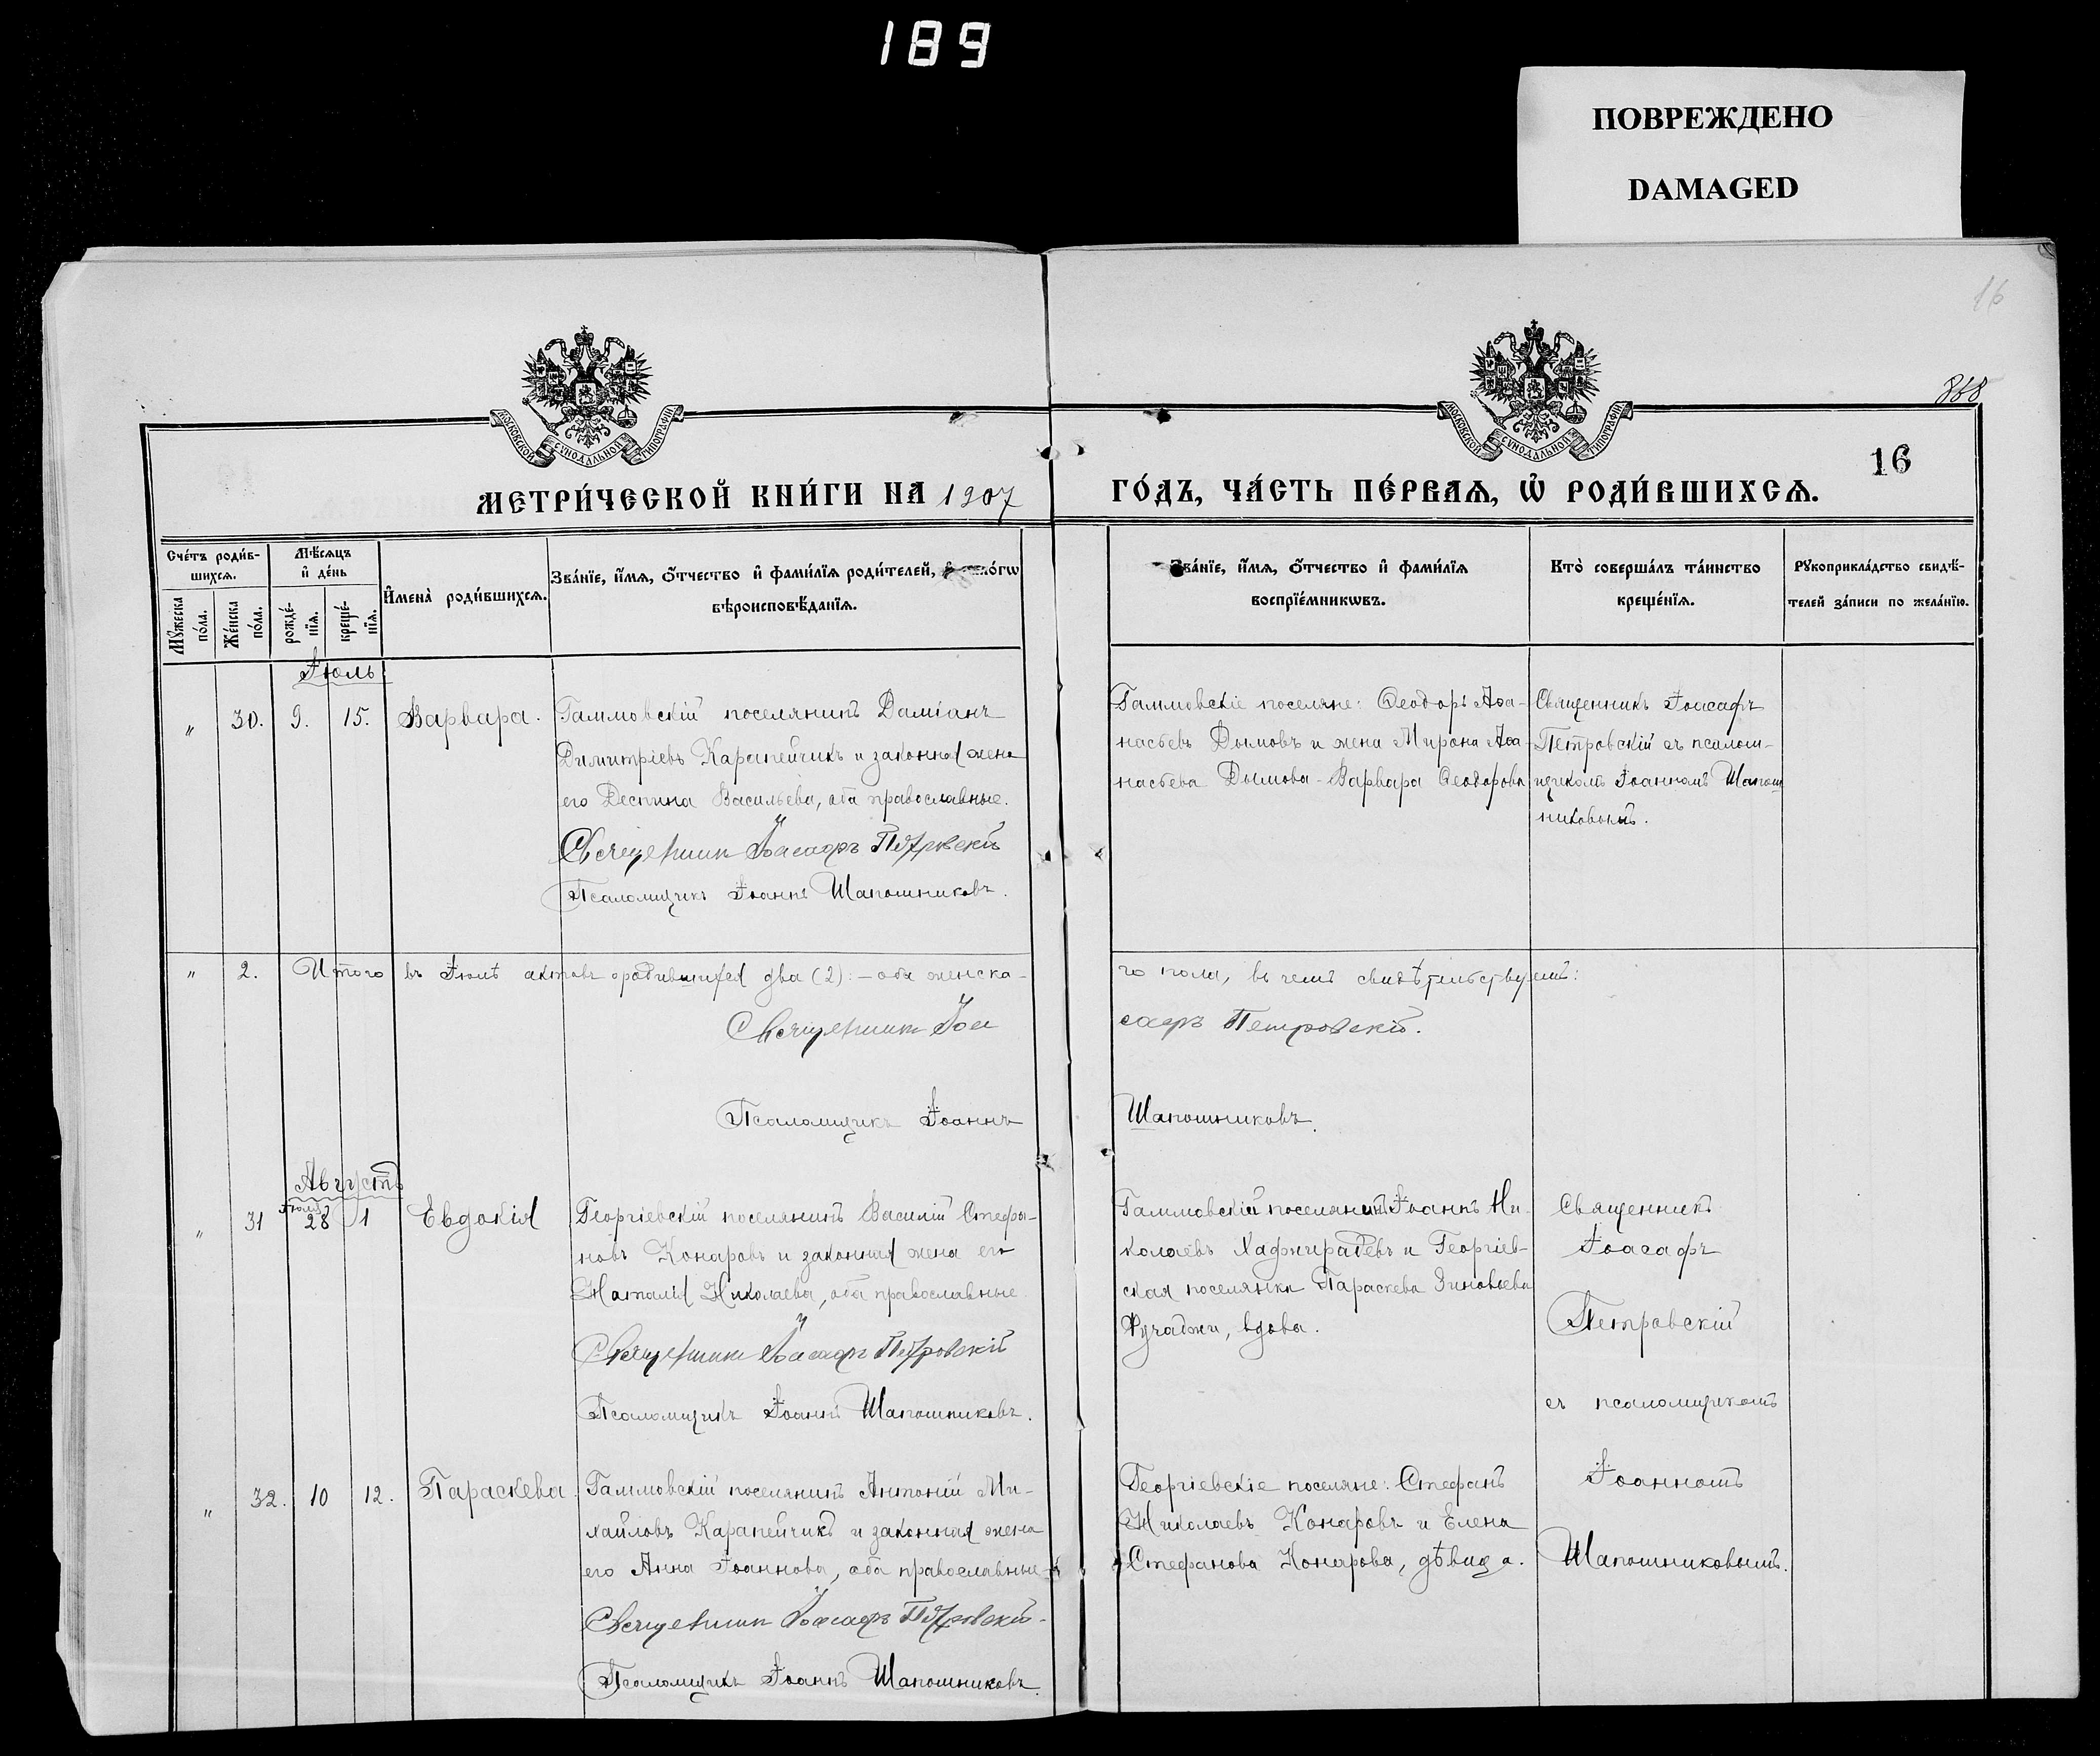 189
ПОВРЕЖДЕНО
DAMAGED
16
868
МОСКОВСКОЙ СѴНОДАЛЬНОЙ ТИПОГРАФІИ
МОСКОВСКОЙ СѴНОДАЛЬНОЙ ТИПОГРАФІИ
16
МЕТРИ́ЧЕСКОЙ КНИ́ГИ НА 1907
ГО́ДЪ, ЧА́СТЬ ПЕ́РВАѦ, Ѿ РОДИ́ВШИХСѦ.
Сче́тъ роди́в-
шихсѧ.
Мꙋ́жеска
по́ла.
Же́нска
по́ла.
Мѣ́сѧцъ
и҆ де́нь
рожде́-
нїѧ.
креще́-
нїѧ.
И҆мена̀ роди́вшихсѧ.
Зва́нїе, и҆́мѧ, ѻ҆́тчество и҆ фами́лїѧ роди́телей, и҆
вѣроисповѣ́данїѧ.
Зва́нїе, и҆́мѧ, ѻ҆́тчество и҆ фами́лїѧ
воспрїе́мникѡвъ.
Кто̀ соверша́лъ та́инство
креще́нїѧ.
Рꙋкоприкла́дство свидѣ́-
телей за́писи по жела́нїю.
Іюль
„ 30. 9. 15. Варвара.
Галмовскій поселянинъ Даміанъ
Димитріевъ Карапейчикъ и законная жена
его Деспина Васильева, оба православные.
Священникъ Іоасафъ Петровскій
Псаломщикъ Іоаннъ Шапошниковъ.
Галмовскіе поселяне: Ѳеодоръ Аѳа-
насьевъ Дымовъ и жена Мирона Аѳа-
насьева Дымова - Варвара Ѳеодорова
Священникъ Іоасафъ
Петровскій съ псалом-
щикомъ Іоанномъ Шапош
никовымъ.
„ 2. Итого въ Іюлѣ актовъ о родившихся два (2): - оба женска-
го пола, въ чемъ свидѣтельствуемъ:
Священникъ Іоа
сафъ Петровскій.
Псаломщикъ Іоаннъ
Шапошниковъ.
Августъ
Іюля
„ 31 28 1 Евдокія
Георгіевскій поселянинъ Василій Стефа-
новъ Конаровъ и законная жена его
Наталія Николаева, оба православные
Священникъ Іоасафъ Петровскій
Псаломщикъ Іоаннъ Шапошниковъ.
Галмовскій поселянинъ Іоаннъ Ни-
колаевъ Хаджирадевъ и Георгіев-
ская поселянка Параскева Зиновьева
Фучаджи, вдова.
Священникъ
Іоасафъ
Петровскій
съ псаломщикомъ
Іоанномъ
Шапошниковымъ.
„ 32. 10 12. Параскева
Галмовскій поселянинъ Антоній Ми-
хайловъ Карапейчикъ и законная жена
его Анна Іоаннова, оба православные
Священникъ Іоасафъ Петровскій
Псаломщикъ Іоаннъ Шапошниковъ.
Георгіевскіе поселяне: Стефанъ
Николаевъ Конаровъ и Елена
Стефанова Конарова, дѣвица.